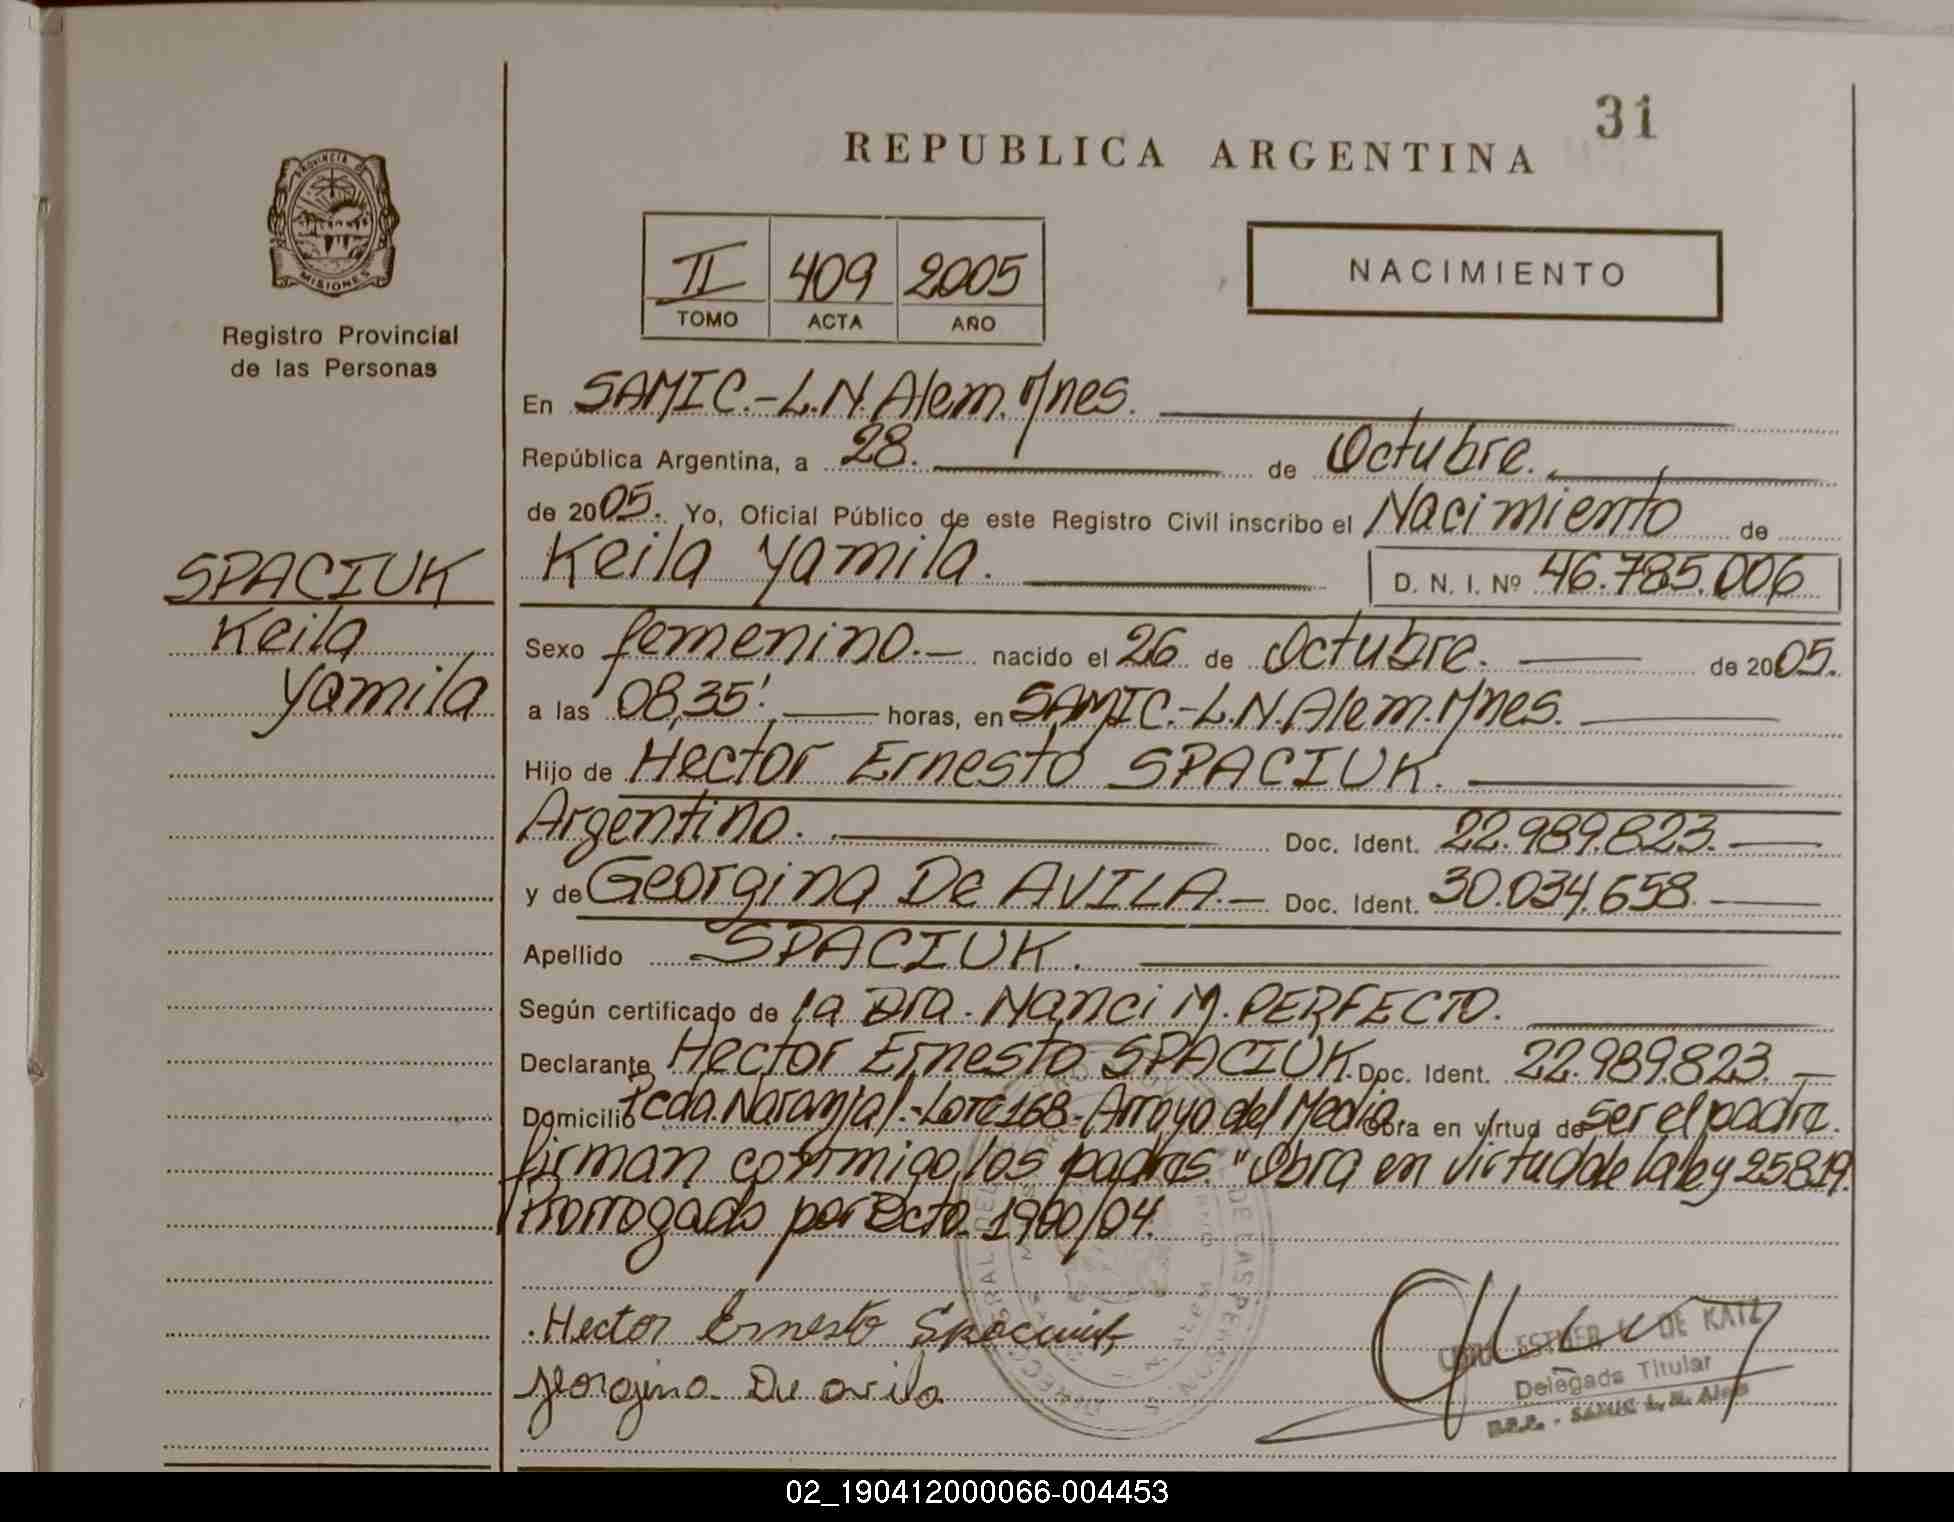 31
REPUBLICA ARGENTINA
PROVINCIA DE
MISIONES
Registro Provincial
de las Personas
II 409 2005
TOMO ACTA AÑO
NACIMIENTO
En SAMIC.-L.N.Alem.Mnes.
República Argentina, a 28. de Octubre.
de 2005. Yo, Oficial Público de este Registro Civil inscribo el Nacimiento de
Keila Yamila. D. N. I. Nº 46.785.006
SPACIUK
Keila
Yamila
Sexo femenino.- nacido el 26 de Octubre. de 2005.
a las 08,35' horas, en SAMIC.-L.N.Alem.Mnes.
Hijo de Hector Ernesto SPACIUK.
Argentino. Doc. Ident. 22.989.823.
y de Georgina De AVILA.- Doc. Ident. 30.034.658.
Apellido SPACIUK.
Según certificado de la Dra. Nanci M. PERFECTO.
Declarante Hector Ernesto SPACIUK. Doc. Ident. 22.989.823.
Domicilio Pcda. Naranjal.-Lote 168-Arroyo del Medio Obra en virtud de ser el padre.
firman conmigo los padres. "Obra en virtud de la ley 25819.
Prorrogado por Dcto. 1900/04.
Hector Ernesto Spaciuk
Georgina De avila
ESTHER DE KATZ
Delegada Titular
02_190412000066-004453